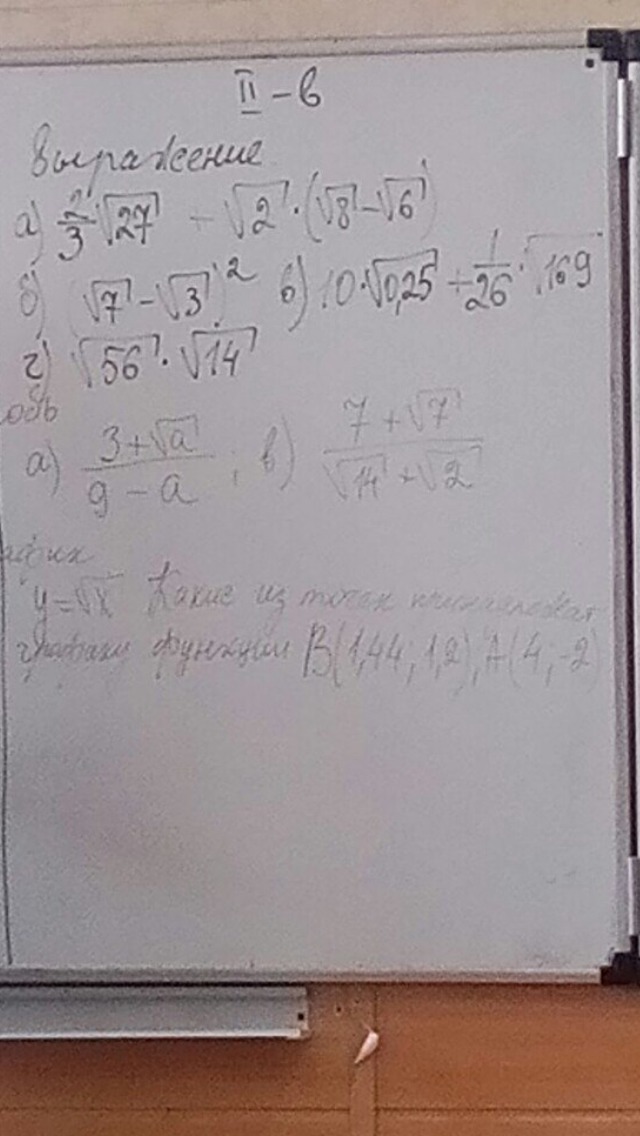 II - в
Выражение
а) 2/3 √27 + √2 · (√8 - √6)
б) (√7 - √3)² в) 10 · √0,25 + 1/26 · √169
г) √56 · √14
обь
а) (3 + √a)/(9 - a) ; в) (7 + √7)/(√14 + √2)
афик
y = √x Какие из точек принадлежат
графику функции B(1,44 ; 1,2), A(4 ; -2)